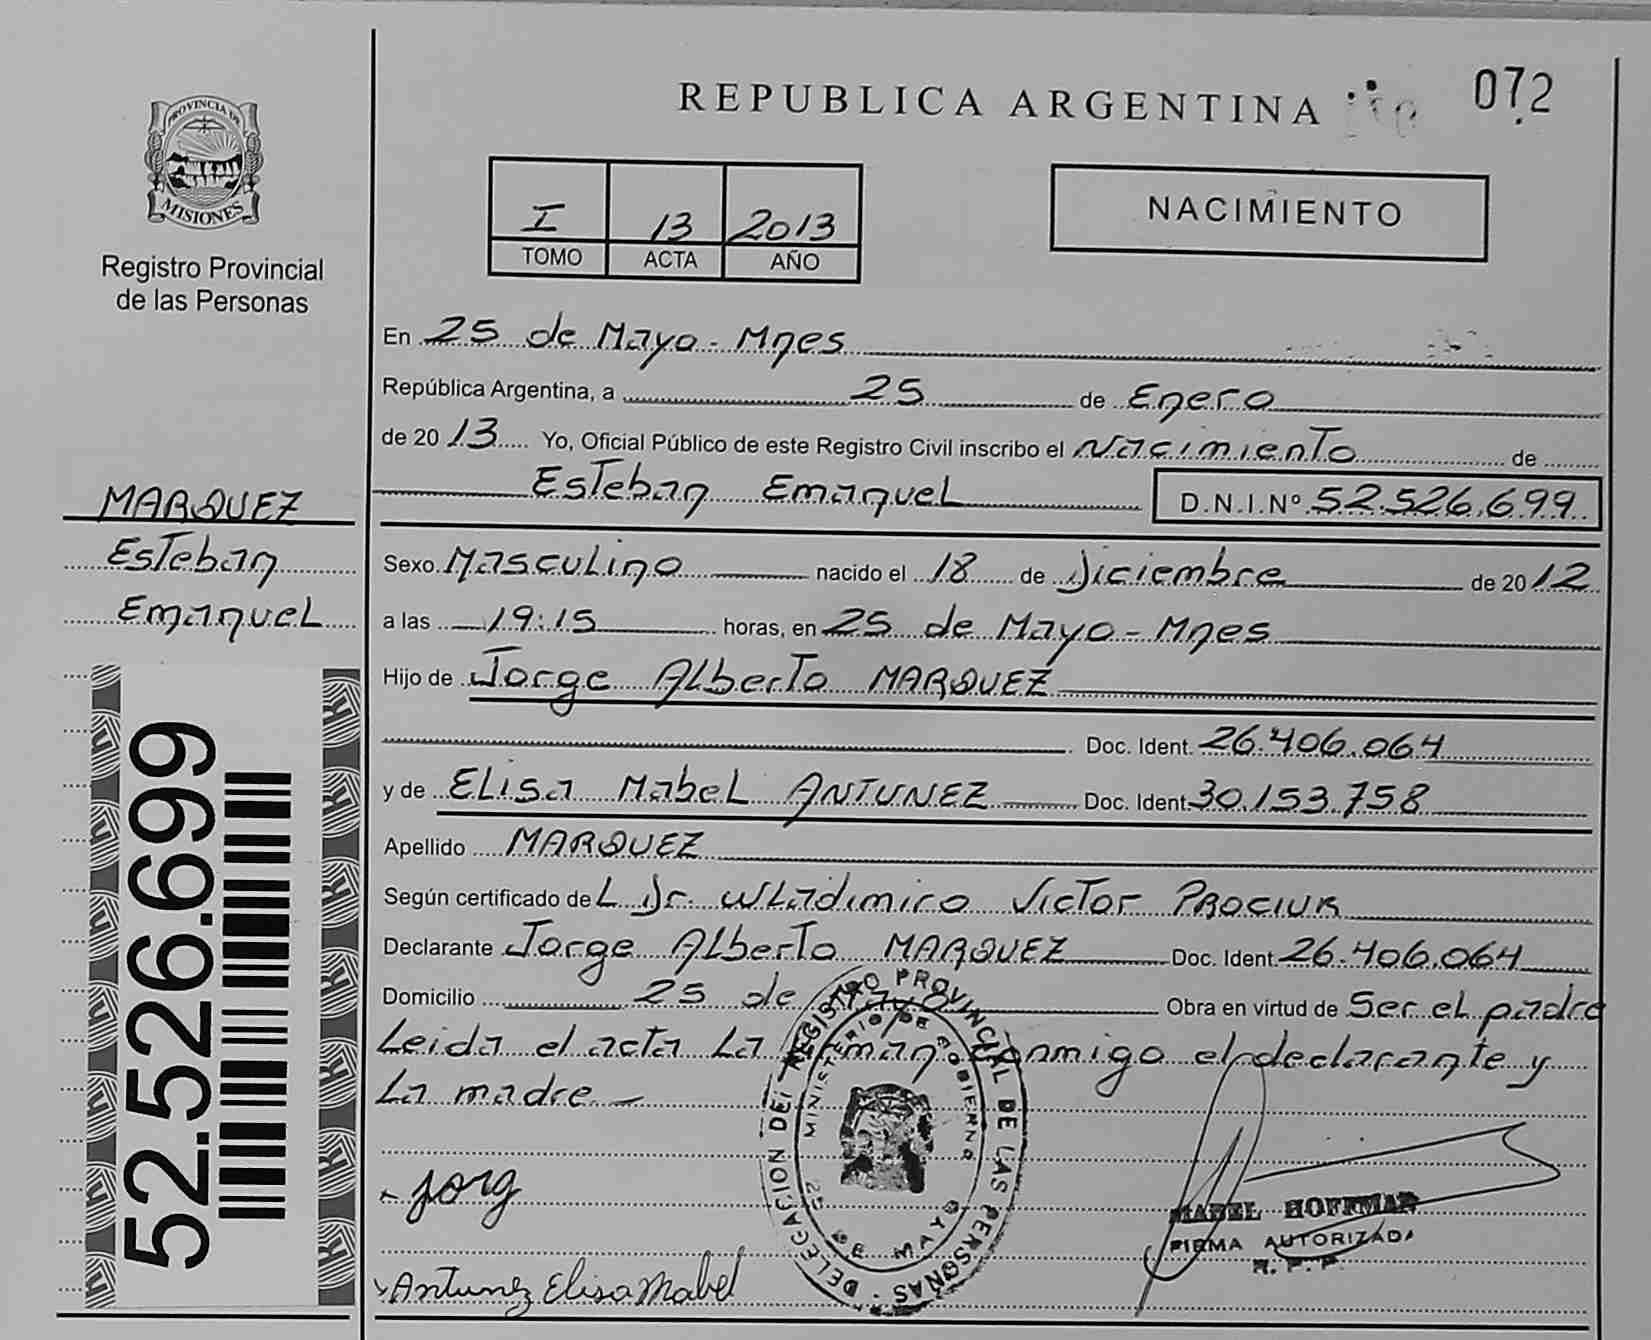 REPUBLICA ARGENTINA
072
PROVINCIA DE
MISIONES
Registro Provincial
de las Personas
I 13 2013
TOMO ACTA AÑO
NACIMIENTO
En 25 de Mayo - Mnes
República Argentina, a 25 de Enero
de 2013 Yo, Oficial Público de este Registro Civil inscribo el Nacimiento de
Esteban Emanuel D.N.I.Nº 52.526.699
MARQUEZ
Esteban
Emanuel
52.526.699
Sexo Masculino nacido el 18 de Diciembre de 2012
a las 19:15 horas, en 25 de Mayo - Mnes
Hijo de Jorge Alberto MARQUEZ
Doc. Ident. 26.406.064
y de Elisa Mabel ANTUNEZ Doc. Ident. 30.153.758
Apellido MARQUEZ
Según certificado de L Dr. Wladimiro Victor PROCIUK
Declarante Jorge Alberto MARQUEZ Doc. Ident. 26.406.064
Domicilio 25 de Mayo Obra en virtud de Ser el padre
Leida el acta La firman conmigo el declarante y
La madre -
DELEGACION DEL REGISTRO PROVINCIAL DE LAS PERSONAS
MINISTERIO DE GOBIERNO
25 DE MAYO
Jorg
MABEL HOFFMAN
FIRMA AUTORIZADA
R. P. P.
Antunez Elisa Mabel